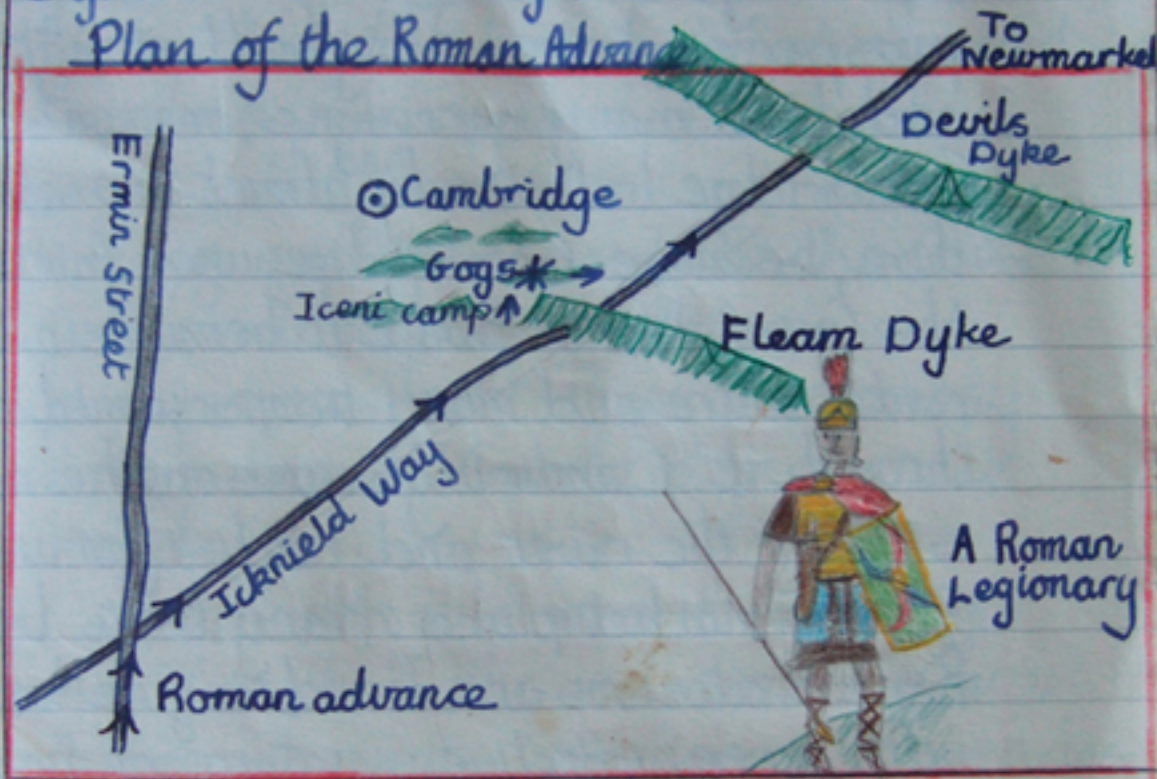 Plan of the Roman Advance
To
Newmarket
Devils
Dyke
Ermin Street
Cambridge
Gogs
Iceni camp
Fleam Dyke
Icknield Way
A Roman
Legionary
Roman advance